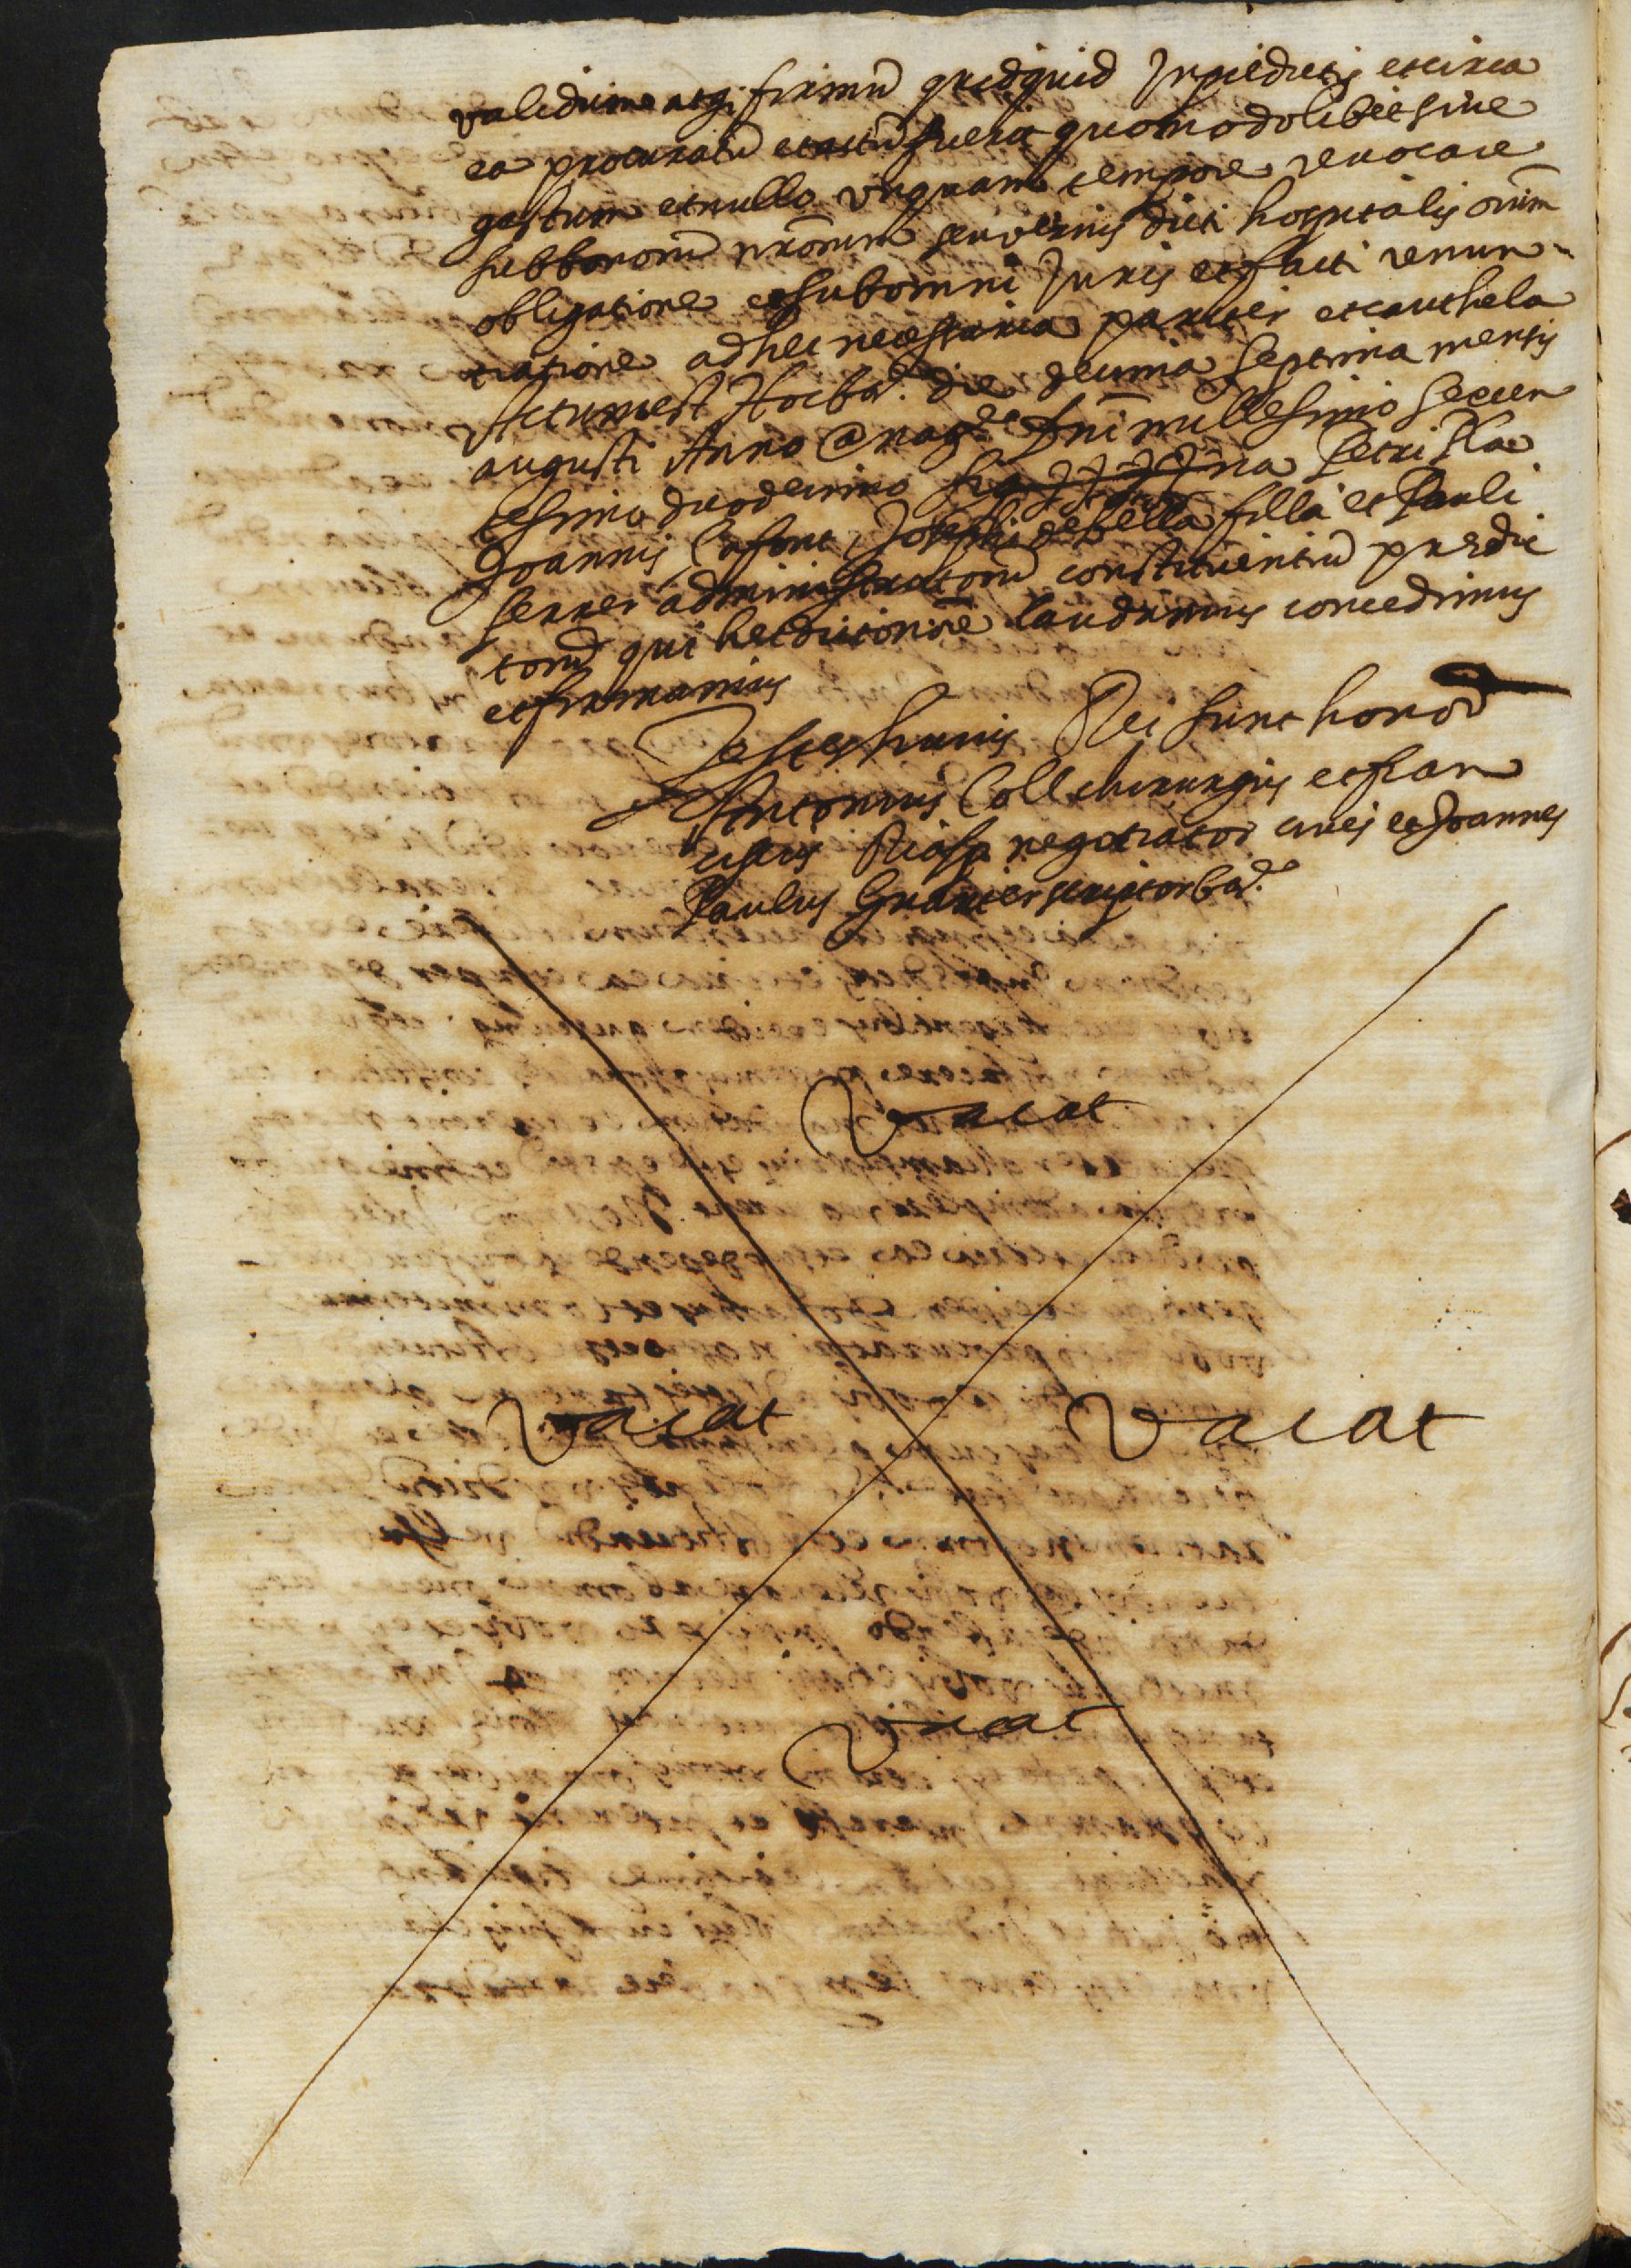 validumatqʒ firmũ quidquid In predictis et circa
ea procuratũ et actũ fuerit quomodolibet sive
gestum et nullo unquam tempore revocare
sub bonorũ nrorum seu verius dicti hospitalis omĩ
obligatione et sub omni Juris et facti renun-
ciatione ad hec necessaria pariter et cauthela
Actum est hoc bar. die decima septima mensis
augusti Anno a nate dni millesimo sexcen
tesimo duodecimo Sig++++na Petri Pla
Joannis Lafont Josephi de Bella filla et Pauli
ferrer administratorũ constituentiũ predic
torũ qui hec dicto noĩe laudamus concedimus
et firmamus
Testes huius Rei sunt honor
Antonius Coll chirurgus et fran
ciscus Riasa negotiator cives et Joannes
Paulus Granier scriptor bar.
Vacat
Vacat Vacat
Vacat